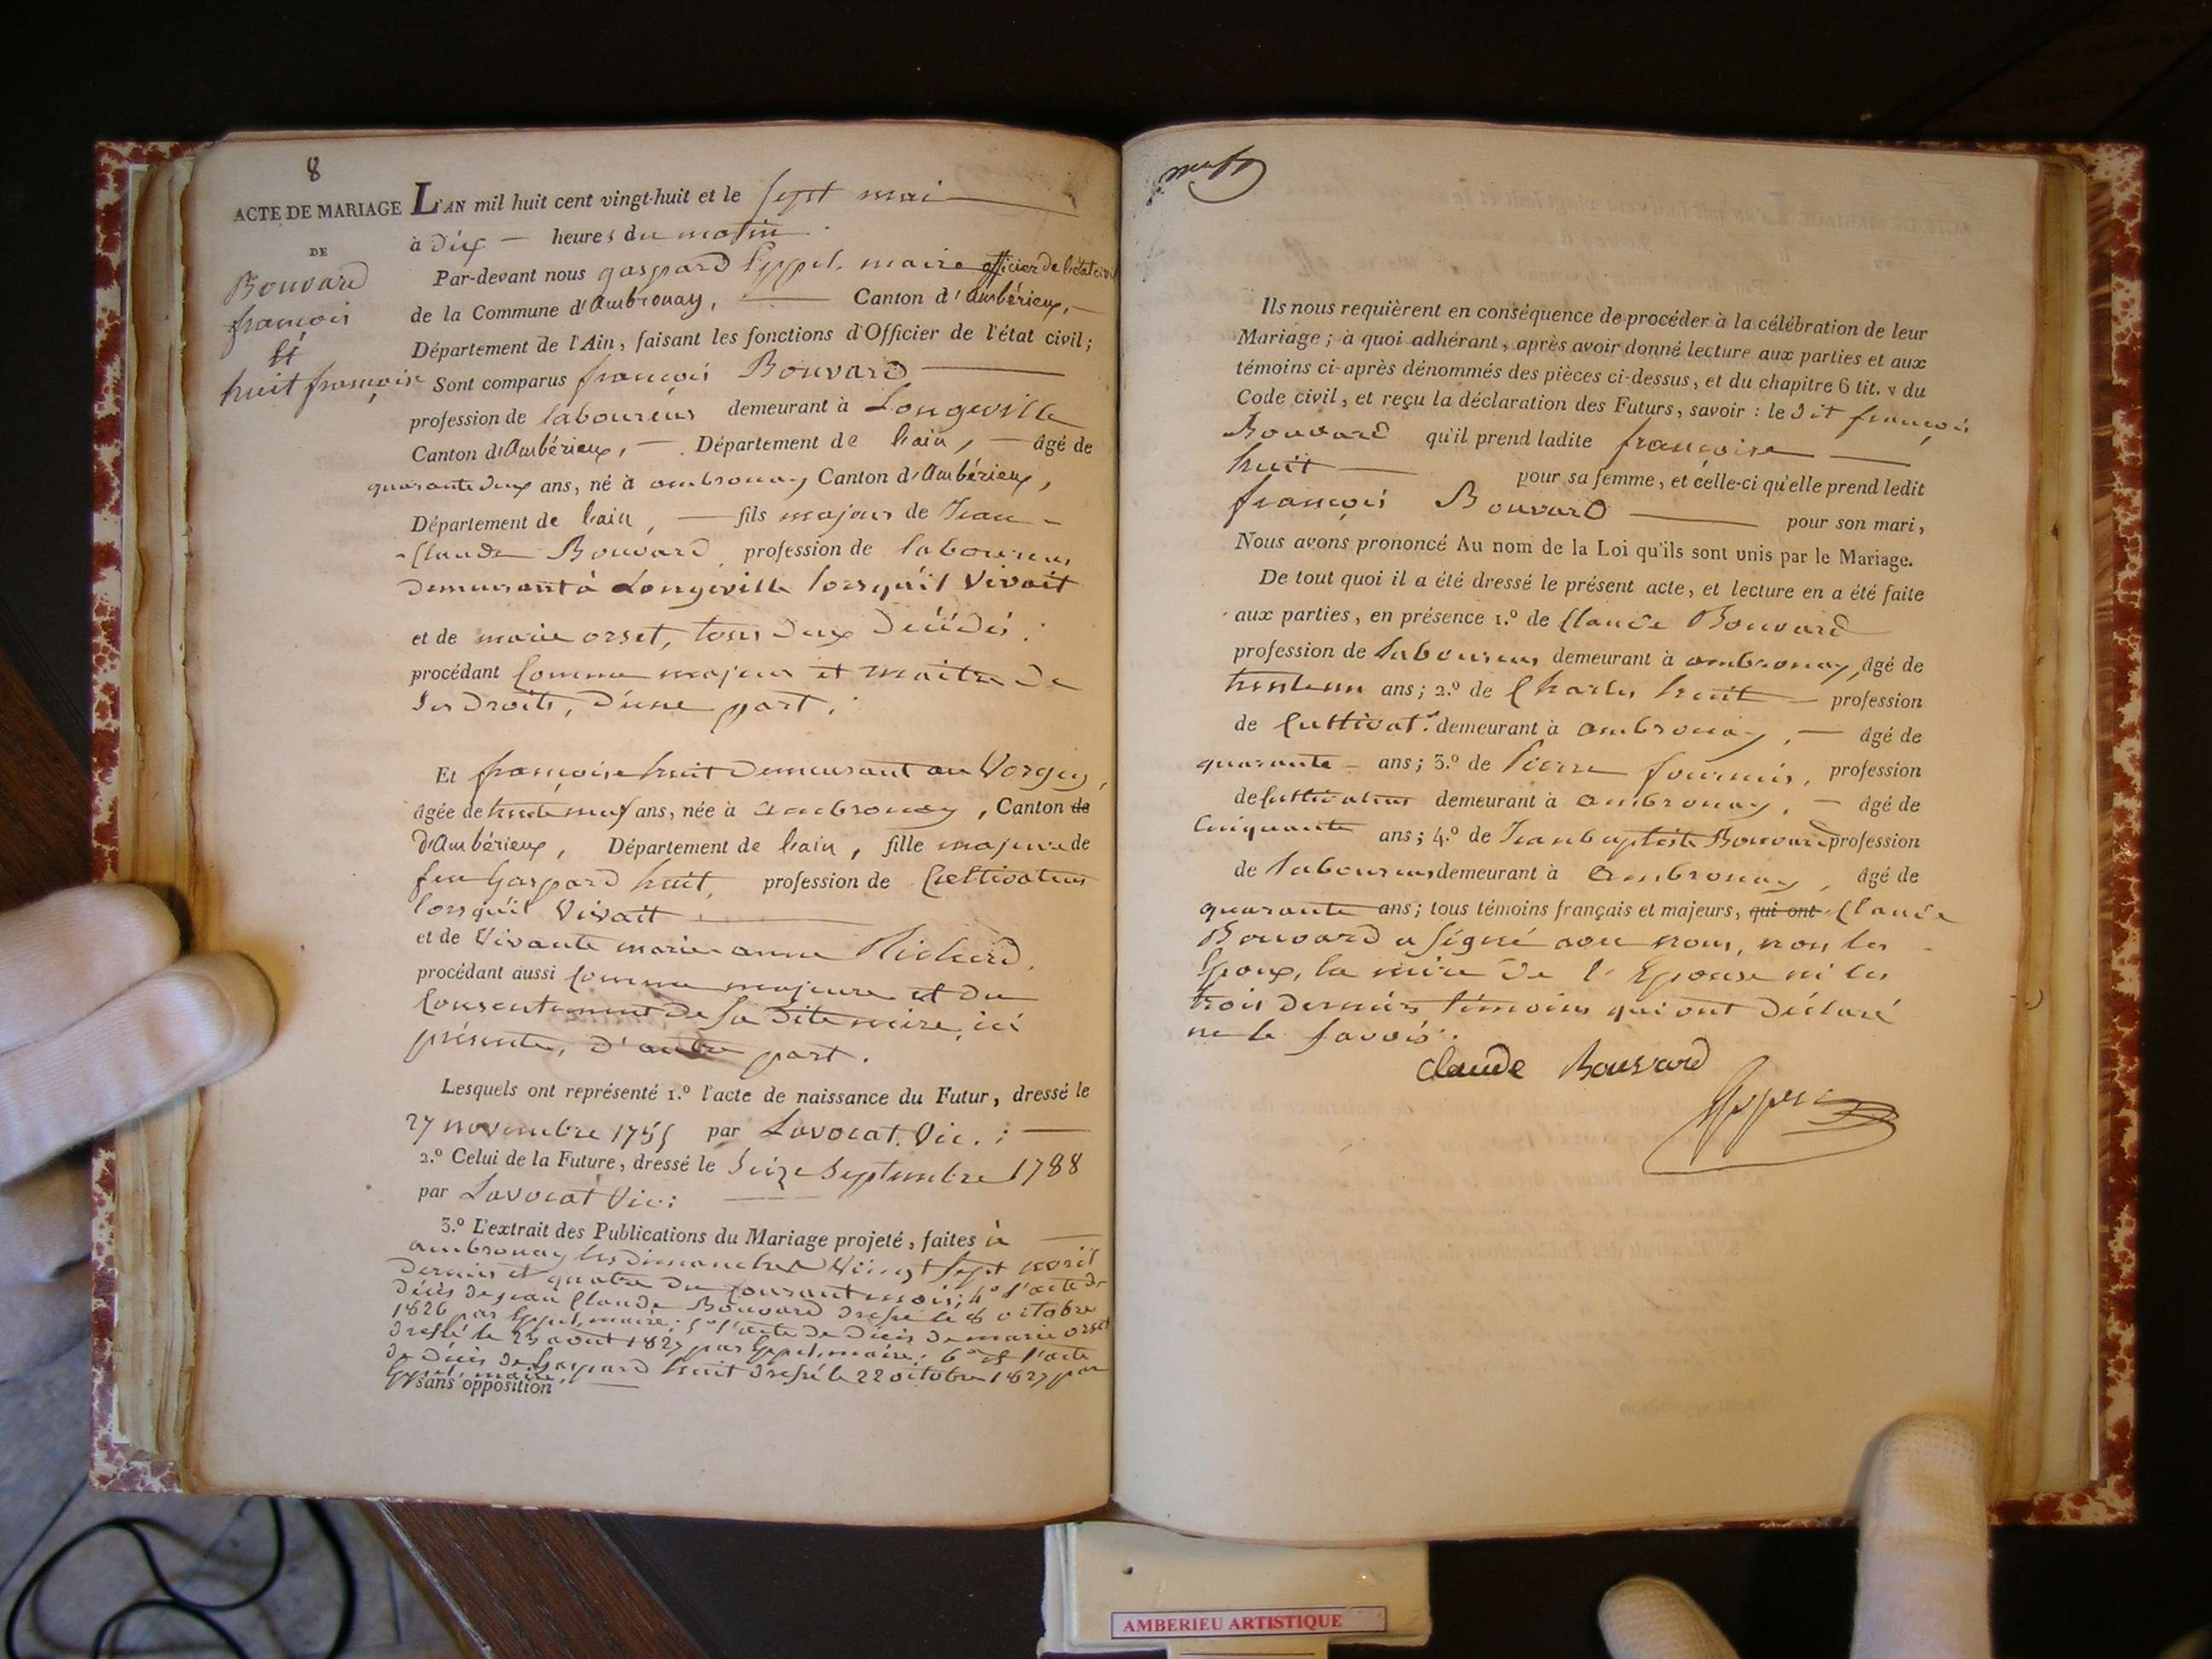 8
ACTE DE MARIAGE
DE
Bouvard
françois
Et
huit françoise
L'AN mil huit cent vingt-huit et le sept mai
à dix heures du matin.
Par-devant nous gaspard Eppel, maire officier de l'état civil
de la Commune d'Ambronay, Canton d'Ambérieux,
Département de l'Ain, faisant les fonctions d'Officier de l'état civil;
Sont comparus françois Bouvard
profession de laboureur demeurant à Longeville
Canton d'Ambérieux, Département de l'ain, âgé de
quarante deux ans, né à ambronay Canton d'Ambérieux,
Département de l'ain, fils majeur de Jean-
-Claude Bouvard profession de laboureur
demeurant à Longeville lorsqu'il Vivait
et de marie orset, tous deux décédés.
procédant Comme majeur et maitre de
ses droits, d'une part.
Et françoise huit demeurant au Vorgey,
âgée de trente neuf ans, née à ambronay, Canton de
d'Ambérieux, Département de l'ain, fille majeure de
feu Gaspard huit, profession de Cultivateur
lorsqu'il Vivait
et de Vivante marie anne Richerd,
procédant aussi Comme majeure et du
Consentement de sa dite mère, ici
présente, d'autre part.
Lesquels ont représenté 1.º l'acte de naissance du Futur, dressé le
27 novembre par Lavocat. Vic.;
2.º Celui de la Future, dressé le seize Septembre 1788
par Lavocat Vic:
3.º L'extrait des Publications du Mariage projeté, faites à
ambronay les dimanches Vingt sept avril
dernier et quatre du Courant mois; 4º l'acte de
décès de jean Claude Bouvard dressé le 8 octobre
1826 par Eppel, maire; 5º l'acte de décès de marie orset
dressé le 23 aout 1827 par Eppel, maire; 6º et l'acte
de décès de Gaspard huit dressé le 22 octobre 1827 par
Eppel, maire,
sans opposition
Ils nous requièrent en conséquence de procéder à la célébration de leur
Mariage; à quoi adhérant, après avoir donné lecture aux parties et aux
témoins ci-après dénommés des pièces ci-dessus, et du chapitre 6 tit. v du
Code civil, et reçu la déclaration des Futurs, savoir: le dit françois
Bouvard qu'il prend ladite françoise
huit pour sa femme, et celle-ci qu'elle prend ledit
françois Bouvard pour son mari,
Nous avons prononcé Au nom de la Loi qu'ils sont unis par le Mariage.
De tout quoi il a été dressé le présent acte, et lecture en a été faite
aux parties, en présence 1.º de Claude Bouvard
profession de laboureur demeurant à ambronay, âgé de
trente un ans; 2.º de Charles huit profession
de Cultivat.r demeurant à ambronay, âgé de
quarante ans; 3.º de Pierre fournier, profession
de Cultivateur demeurant à ambronay, âgé de
Cinquante ans; 4.º de Jean baptiste Bouvard profession
de laboureur demeurant à Ambronay, âgé de
quarante ans; tous témoins français et majeurs, qui ont Claude
Bouvard a signé avec nous, non les
Epoux, la mère de l'Epouse ni les
trois derniers témoins qui ont déclaré
ne le savoir.
Claude Bouvard
Eppel
AMBERIEU ARTISTIQUE